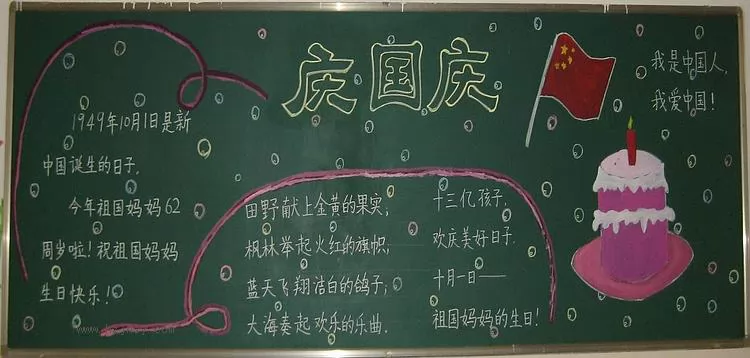 庆国庆
我是中国人,
我爱中国!
1949年10月1日是新
中国诞生的日子.
今年祖国妈妈62
周岁啦!祝祖国妈妈
生日快乐!
田野献上金黄的果实;
枫林举起火红的旗帜;
蓝天飞翔洁白的鸽子;
大海奏起欢乐的乐曲.
十三亿孩子.
欢庆美好日子.
十月一日——
祖国妈妈的生日!